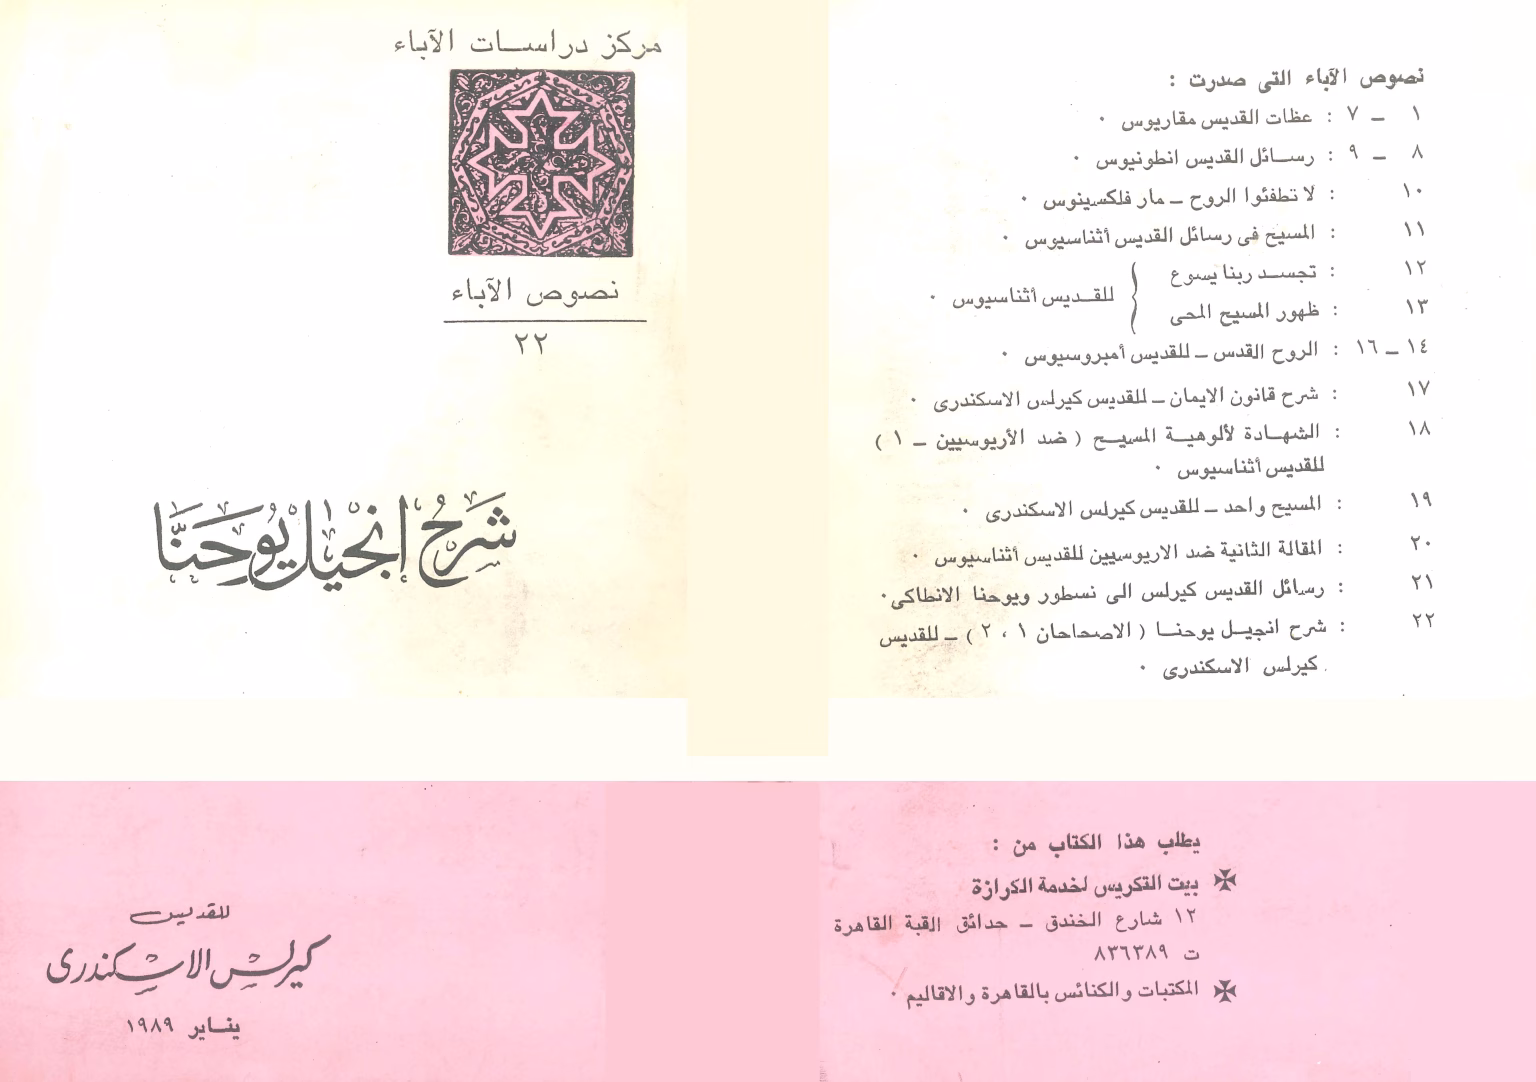 مركز دراسات الآباء
نصوص الآباء
٢٢
شرح انجيل يوحنا
للقديس
كيرلس الاسكندرى
يناير ١٩٨٩
نصوص الآباء التى صدرت :
١ ــ ٧ : عظات القديس مقاريوس ٠
٨ ــ ٩ : رسائل القديس انطونيوس ٠
١٠ : لا تطفئوا الروح ــ مار فلكسينوس ٠
١١ : المسيح فى رسائل القديس أثناسيوس ٠
١٢ : تجسد ربنا يسوع
١٣ : ظهور المسيح المحى
للقديس أثناسيوس ٠
١٤ ــ ١٦ : الروح القدس ــ للقديس أمبروسيوس ٠
١٧ : شرح قانون الايمان ــ للقديس كيرلس الاسكندرى ٠
١٨ : الشهادة لألوهية المسيح ( ضد الأريوسيين ــ ١ )
للقديس أثناسيوس ٠
١٩ : المسيح واحد ــ للقديس كيرلس الاسكندرى ٠
٢٠ : المقالة الثانية ضد الاريوسيين للقديس أثناسيوس ٠
٢١ : رسائل القديس كيرلس الى نسطور ويوحنا الانطاكى ٠
٢٢ : شرح انجيل يوحنا ( الاصحاحان ١ ، ٢ ) ــ للقديس
كيرلس الاسكندرى ٠
يطلب هذا الكتاب من :
بيت التكريس لخدمة الكرازة
١٢ شارع الخندق ــ حدائق القبة القاهرة
ت ٨٣٦٣٨٩
المكتبات والكنائس بالقاهرة والاقاليم ٠